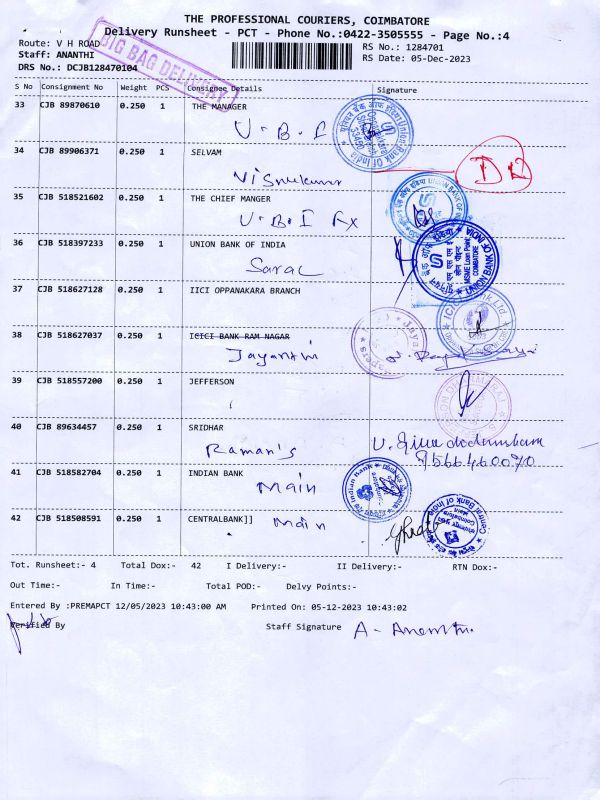 THE PROFESSIONAL COURIERS, COIMBATORE
Delivery Runsheet - PCT - Phone No.:0422-3505555 - Page No.:4
Route: V H ROAD RS No.: 1284701
Staff: ANANTHI RS Date: 05-Dec-2023
DRS No.: DCJB128470104
BIG BAG DELIVERY
S No Consignment No Weight PCS Consignee Details Signature
33 CJB 89870610 0.250 1 THE MANAGER
U.B.I
34 CJB 89906371 0.250 1 SELVAM
Vishnukumar
35 CJB 518521602 0.250 1 THE CHIEF MANGER
U.B.I
36 CJB 518397233 0.250 1 UNION BANK OF INDIA
37 CJB 518627128 0.250 1 IICI OPPANAKARA BRANCH
38 CJB 518627037 0.250 1 ICICI BANK RAM NAGAR
Jayanthi
39 CJB 518557200 0.250 1 JEFFERSON
40 CJB 89634457 0.250 1 SRIDHAR
Raman's
41 CJB 518582704 0.250 1 INDIAN BANK
Main
42 CJB 518508591 0.250 1 CENTRALBANK]]
Main
Tot. Runsheet:- 4 Total Dox:- 42 I Delivery:- II Delivery:- RTN Dox:-
Out Time:- In Time:- Total POD:- Delvy Points:-
Entered By :PREMAPCT 12/05/2023 10:43:00 AM Printed On: 05-12-2023 10:43:02
Verified By Staff Signature A-